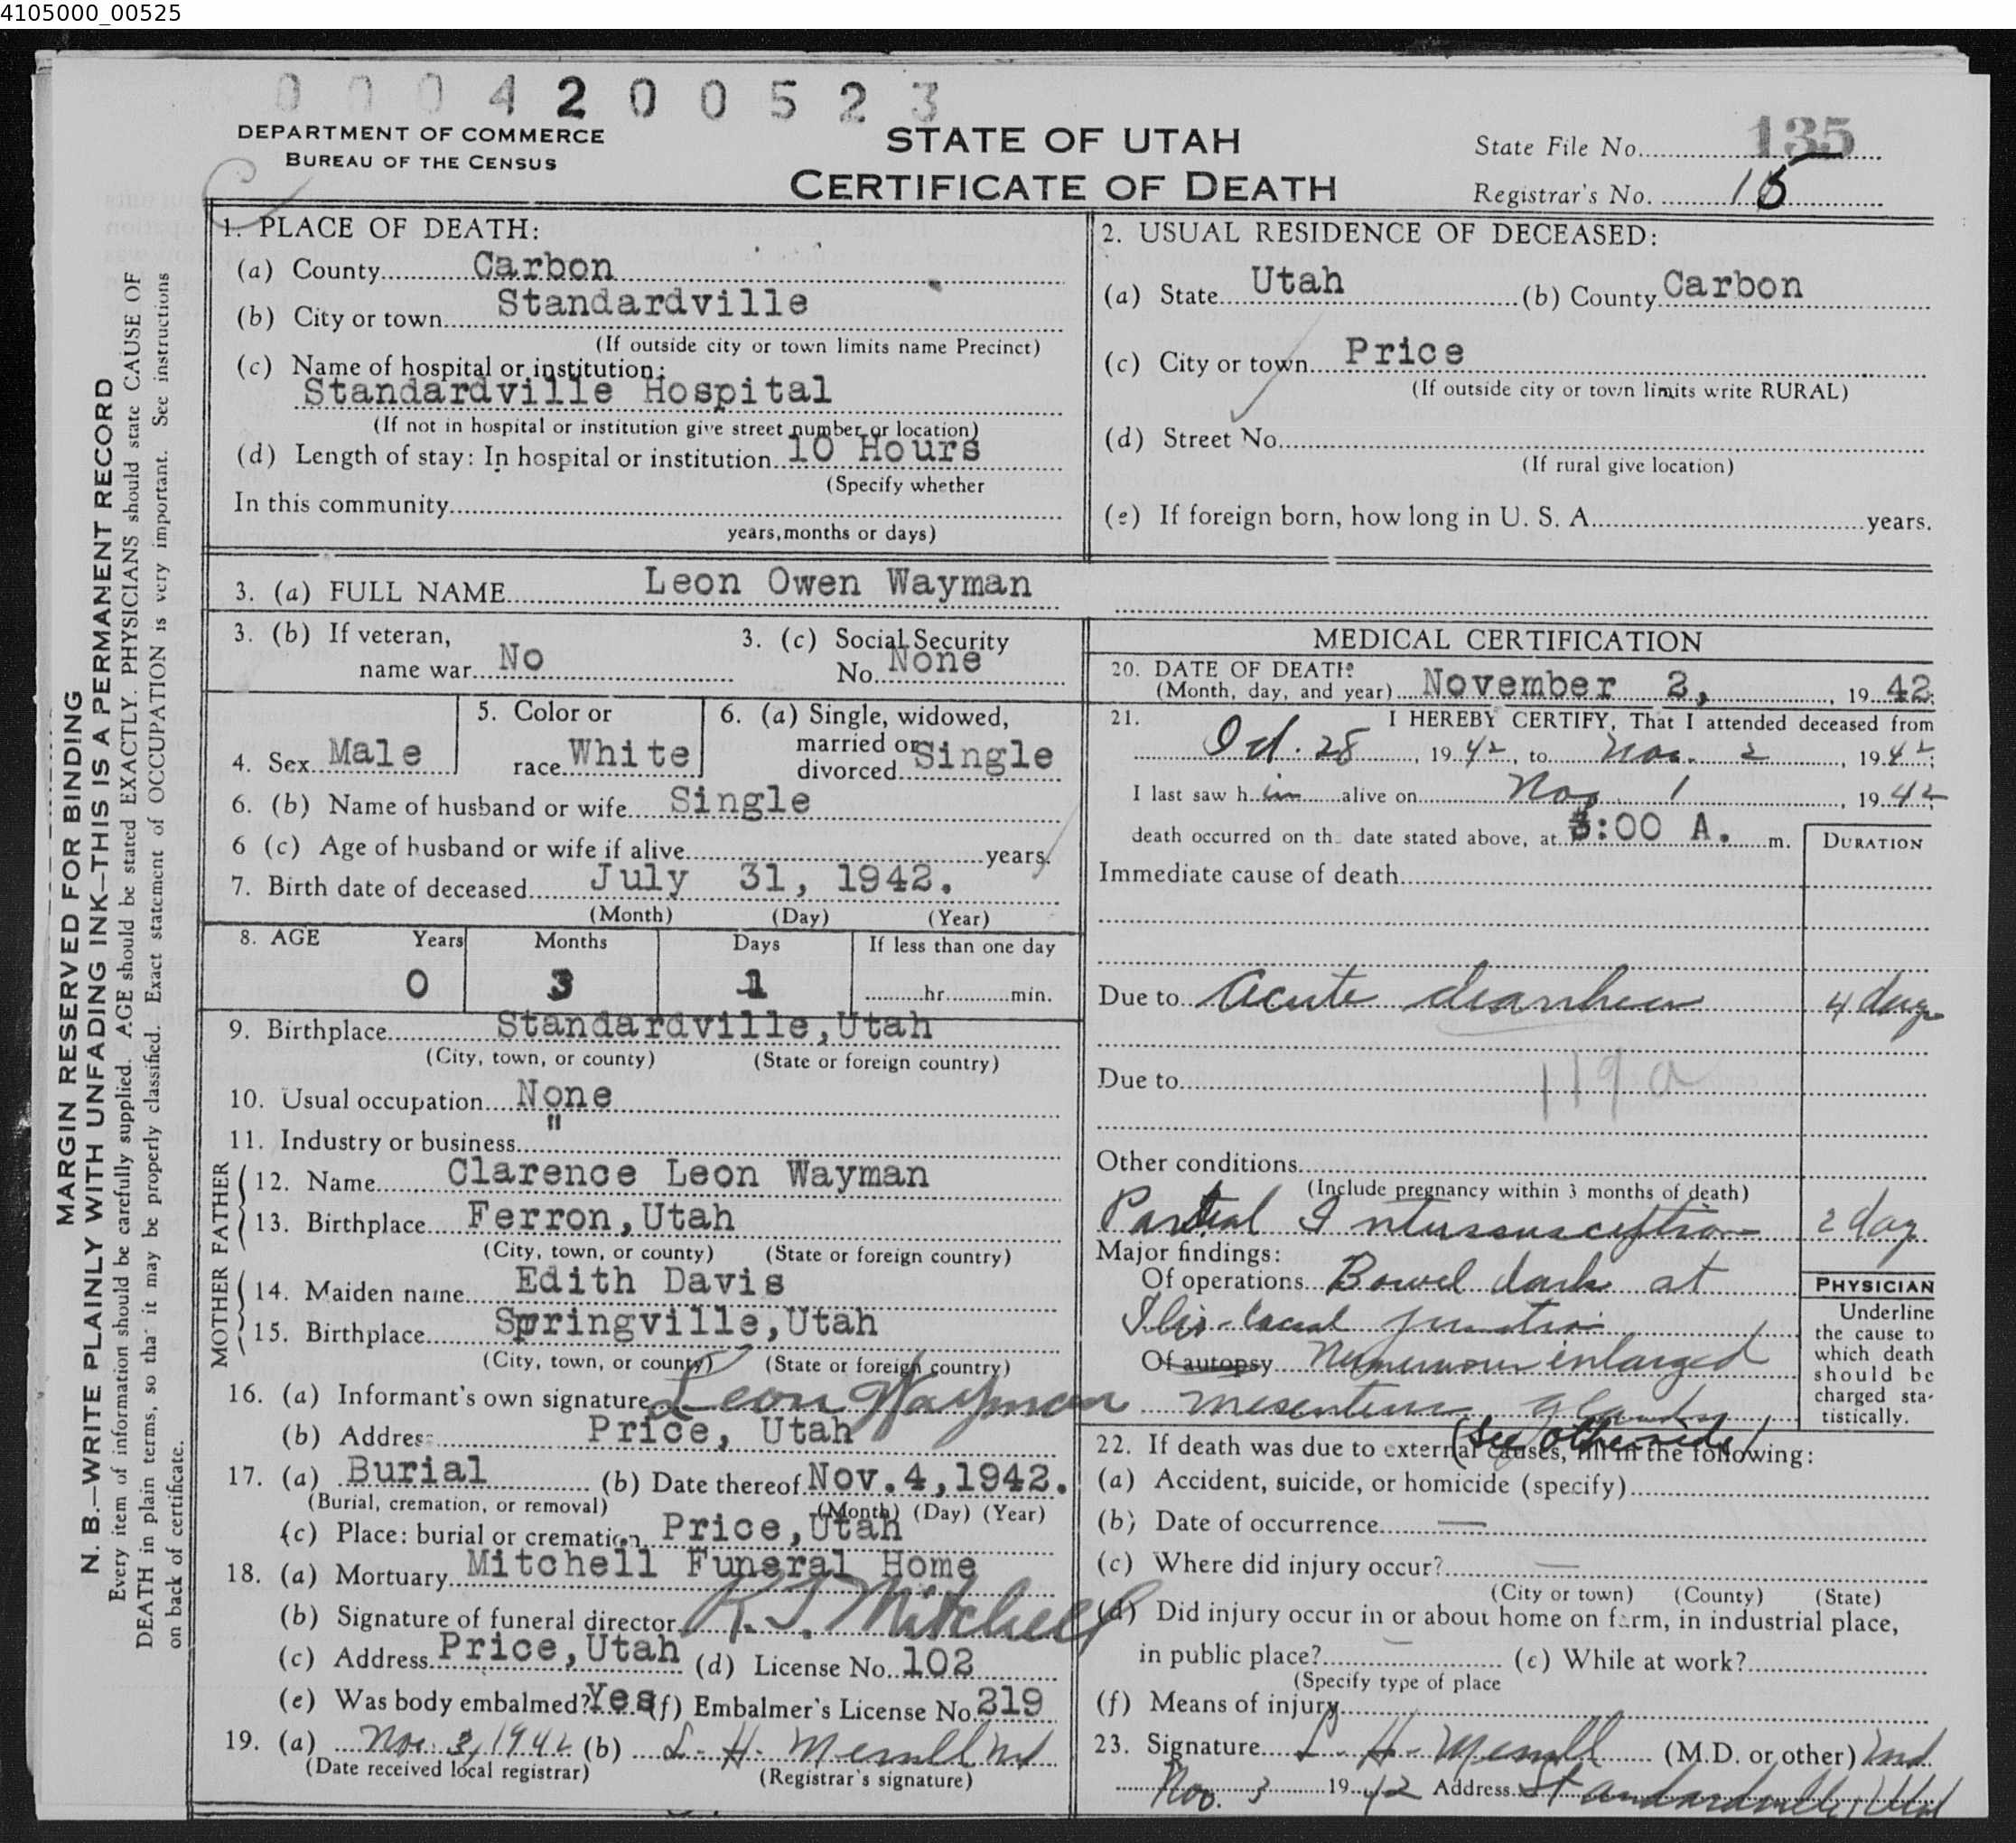 4105000_00525
0004200523
DEPARTMENT OF COMMERCE
BUREAU OF THE CENSUS
STATE OF UTAH
CERTIFICATE OF DEATH
State File No. 135
Registrar's No. 15
MARGIN RESERVED FOR BINDING
N. B.—WRITE PLAINLY WITH UNFADING INK—THIS IS A PERMANENT RECORD
Every item of information should be carefully supplied. AGE should be stated EXACTLY. PHYSICIANS should state CAUSE OF
DEATH in plain terms, so that it may be properly classified. Exact statement of OCCUPATION is very important. See instructions
on back of certificate.
1. PLACE OF DEATH:
(a) County Carbon
(b) City or town Standardville
(If outside city or town limits name Precinct)
(c) Name of hospital or institution:
Standardville Hospital
(If not in hospital or institution give street number or location)
(d) Length of stay: In hospital or institution 10 Hours
(Specify whether
In this community
years, months or days)
2. USUAL RESIDENCE OF DECEASED:
(a) State Utah (b) County Carbon
(c) City or town Price
(If outside city or town limits write RURAL)
(d) Street No.
(If rural give location)
(e) If foreign born, how long in U. S. A. years.
3. (a) FULL NAME Leon Owen Wayman
3. (b) If veteran, name war No
3. (c) Social Security No. None
4. Sex Male
5. Color or race White
6. (a) Single, widowed, married or divorced Single
6. (b) Name of husband or wife Single
6 (c) Age of husband or wife if alive years.
7. Birth date of deceased July 31, 1942.
(Month) (Day) (Year)
8. AGE Years Months Days If less than one day
0 3 1 hr. min.
9. Birthplace Standardville, Utah
(City, town, or county) (State or foreign country)
10. Usual occupation None
11. Industry or business "
FATHER
12. Name Clarence Leon Wayman
13. Birthplace Ferron, Utah
(City, town, or county) (State or foreign country)
MOTHER
14. Maiden name Edith Davis
15. Birthplace Springville, Utah
(City, town, or county) (State or foreign country)
16. (a) Informant's own signature Leon Wayman
(b) Address Price, Utah
17. (a) Burial (b) Date thereof Nov. 4, 1942.
(Burial, cremation, or removal) (Month) (Day) (Year)
(c) Place: burial or cremation Price, Utah
18. (a) Mortuary Mitchell Funeral Home
(b) Signature of funeral director Mitchell
(c) Address Price, Utah (d) License No. 102
(e) Was body embalmed? Yes (f) Embalmer's License No. 219
19. (a) Nov. 3, 1942 (b) L. H. Merrill Md
(Date received local registrar) (Registrar's signature)
MEDICAL CERTIFICATION
20. DATE OF DEATH:
(Month, day, and year) November 2, 1942.
21. I HEREBY CERTIFY, That I attended deceased from
Oct. 28, 1942, to Nov. 2, 1942;
I last saw h im alive on Nov 1, 1942;
death occurred on the date stated above, at :00 A. m.
DURATION
Immediate cause of death
Due to Acute diarrhea 4 days
Due to 119a
Other conditions
(Include pregnancy within 3 months of death)
Partial Intussusception 2 day
Major findings:
Of operations Bowel dark at
Ilio-cecal junction
Of autopsy Numerous enlarged
mesenteric glands
(see other side)
PHYSICIAN
Underline
the cause to
which death
should be
charged sta-
tistically.
22. If death was due to external causes, fill in the following:
(a) Accident, suicide, or homicide (specify)
(b) Date of occurrence —
(c) Where did injury occur? —
(City or town) (County) (State)
(d) Did injury occur in or about home on farm, in industrial place,
in public place? — (e) While at work?
(Specify type of place
(f) Means of injury
23. Signature L. H. Merrill (M.D. or other) Md
Nov. 3 1942 Address Standardville, Utah